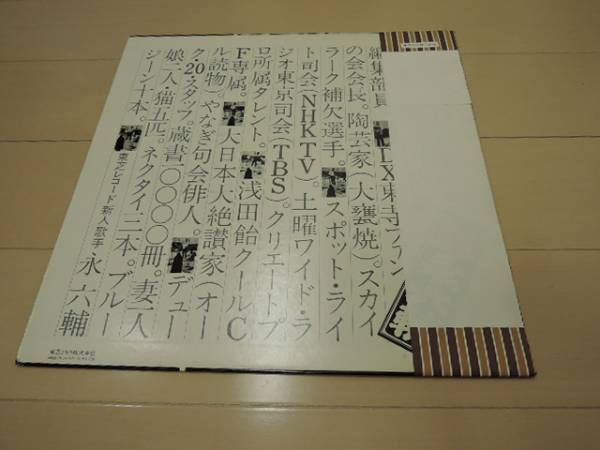 編集部員
DX東寺ファン
の会会長。陶芸家(大甕焼)。スカイ
ラーク補欠選手。スポット・ライ
ト司会(NHKTV)。土曜ワイド・ラ
ジオ東京司会(TBS)。クリエートプ
ロ所属タレント。浅田飴クールC
F専属。大日本大絶讃家(オー
ル読物)。やなぎ句会俳人。デュー
ク・20・スタッフ。蔵書一〇〇〇〇冊。妻一人
娘二人・猫五匹。ネクタイ三本。ブルー
ジーン十本。
東芝レコード新人歌手 永六輔